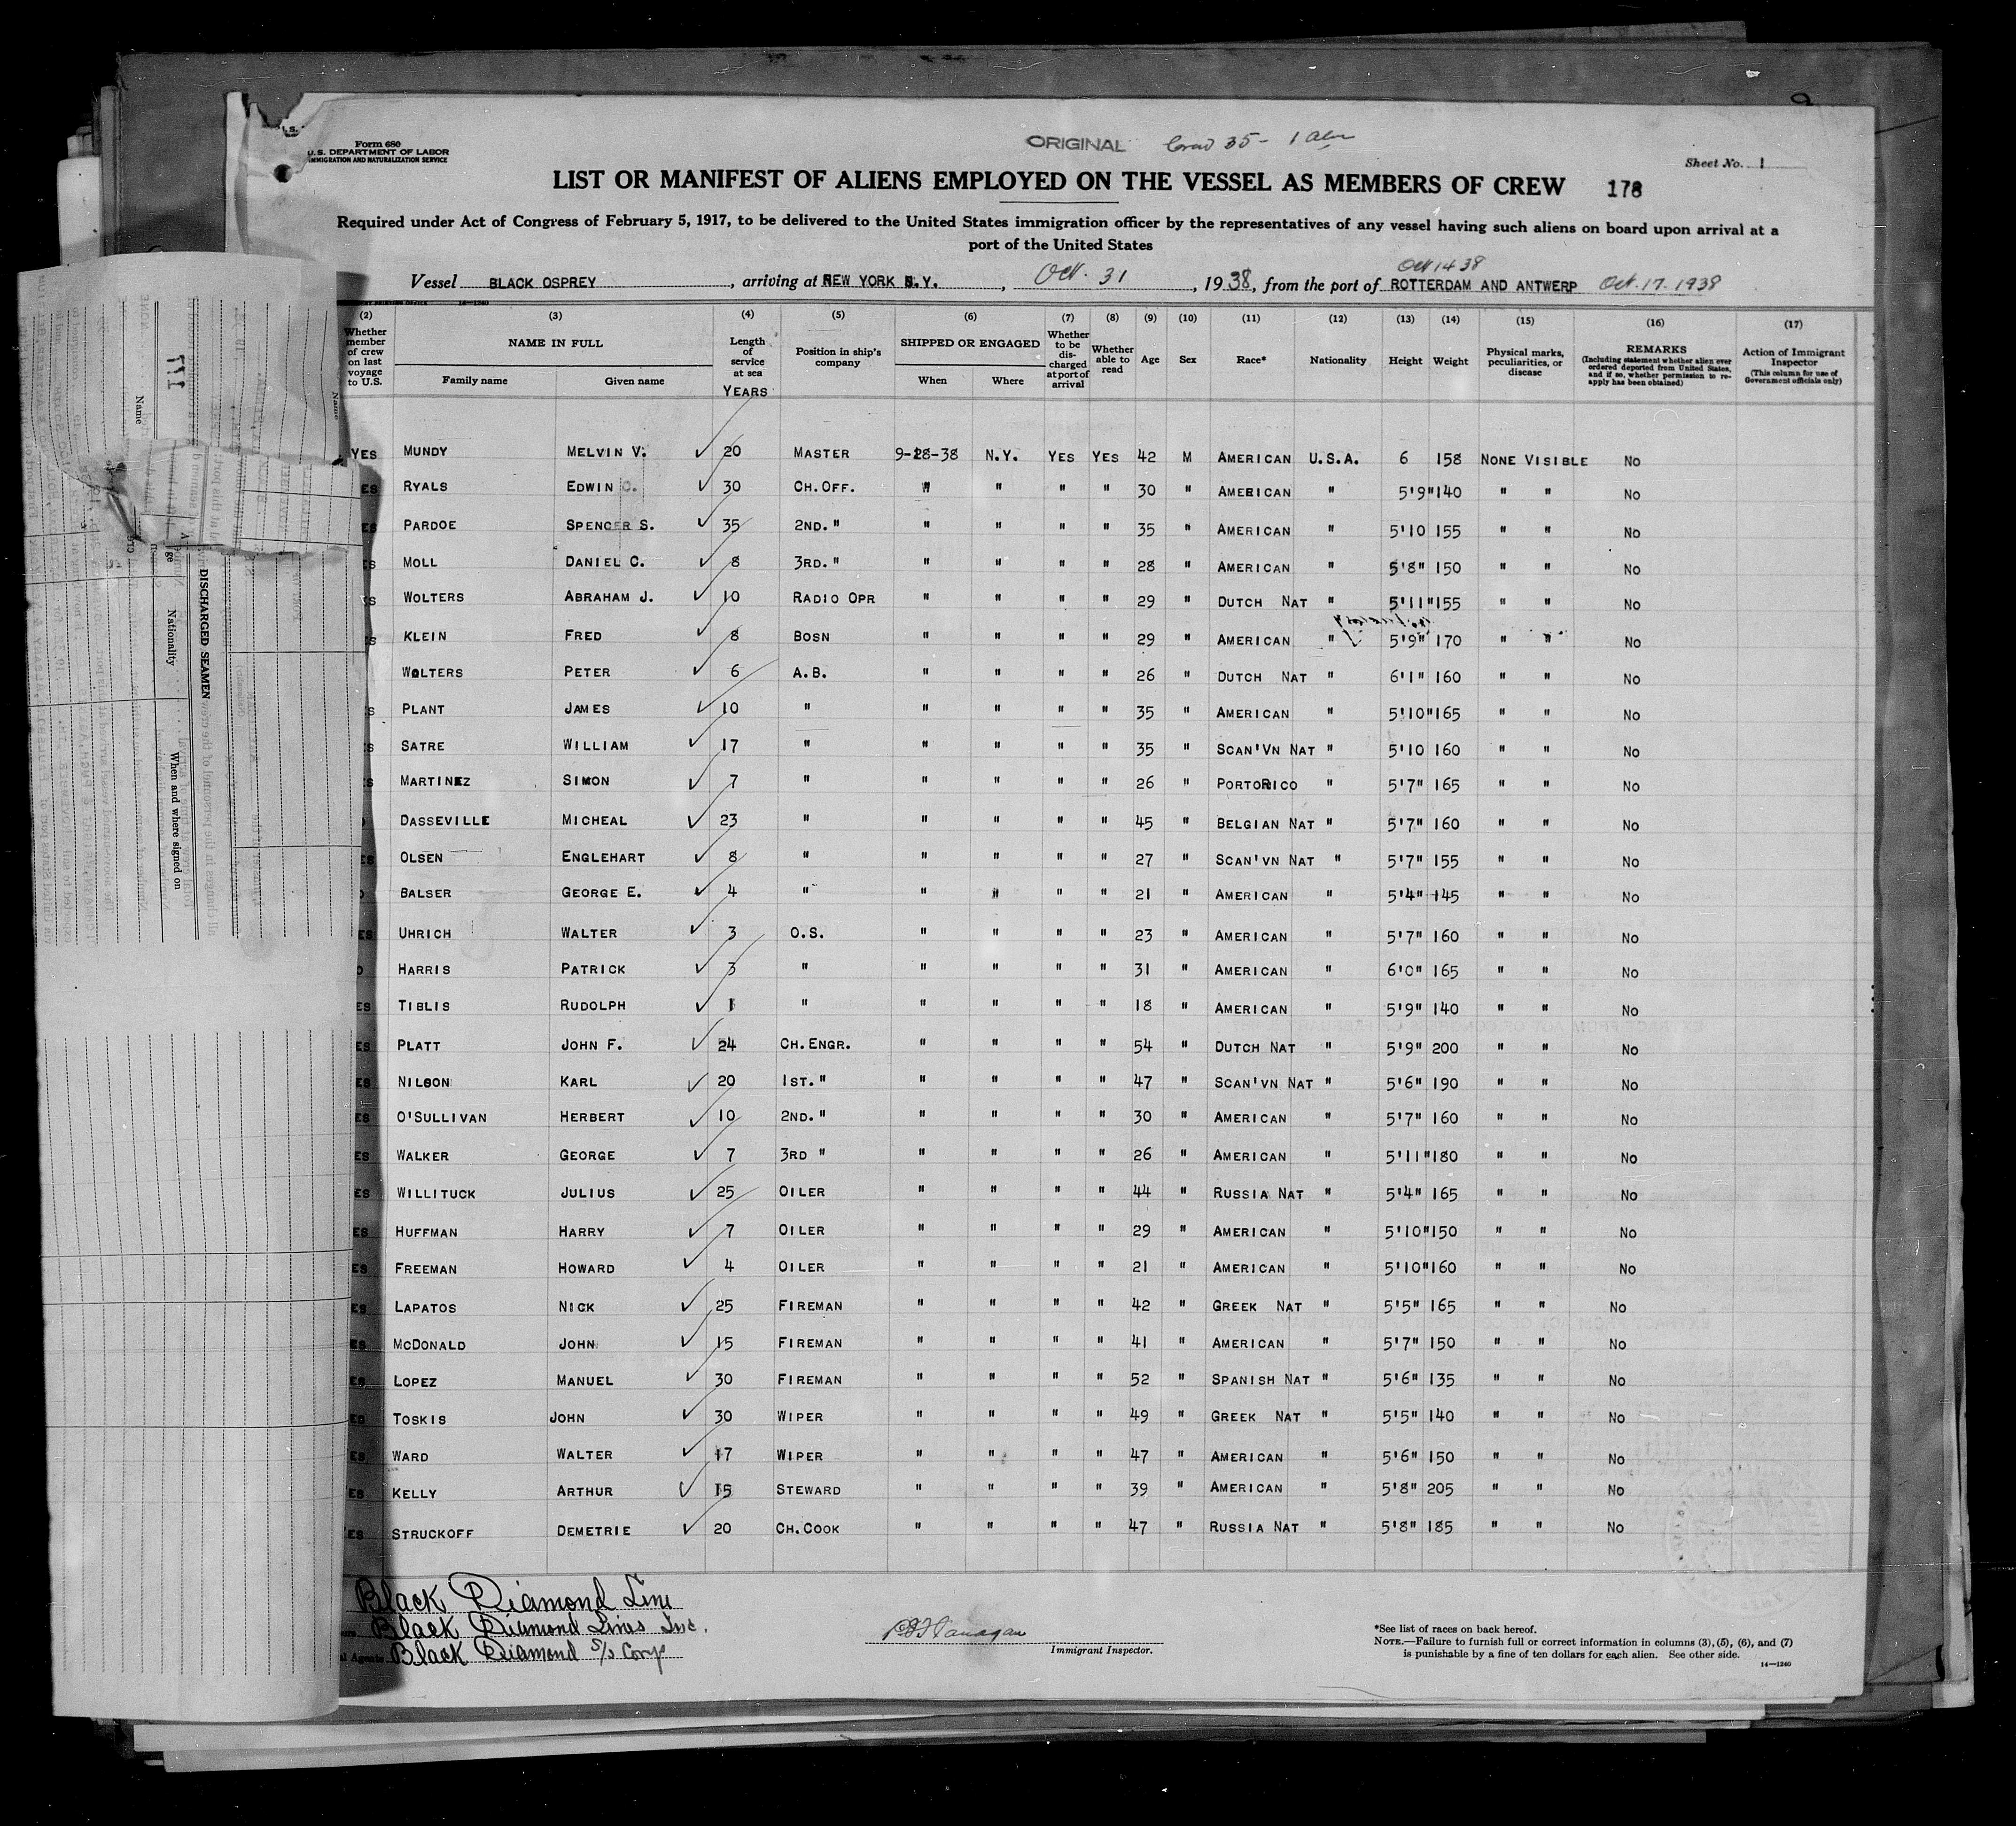 Form 680
U.S. DEPARTMENT OF LABOR
IMMIGRATION AND NATURALIZATION SERVICE
ORIGINAL
Sheet No. 1
LIST OR MANIFEST OF ALIENS EMPLOYED ON THE VESSEL AS MEMBERS OF CREW 178
Required under Act of Congress of February 5, 1917, to be delivered to the United States immigration officer by the representatives of any vessel having such aliens on board upon arrival at a
port of the United States
Oct 14 38
Vessel BLACK OSPREY, arriving at NEW YORK N.Y., Oct. 31, 1938, from the port of ROTTERDAM AND ANTWERP Oct. 17. 1938
(2) (3) (4) (5) (6) (7) (8) (9) (10) (11) (12) (13) (14) (15) (16) (17)
Whether member of crew on last voyage to U.S. NAME IN FULL Family name Given name Length of service at sea YEARS Position in ship's company SHIPPED OR ENGAGED When Where Whether to be discharged at port of arrival Whether able to read Age Sex Race* Nationality Height Weight Physical marks, peculiarities, or disease REMARKS (Including statement whether alien ever ordered deported from United States, and if so, whether permission to reapply has been obtained) Action of Immigrant Inspector (This column for use of Government officials only)
YES MUNDY MELVIN V. ✓ 20 MASTER 9-28-38 N.Y. YES YES 42 M AMERICAN U.S.A. 6 158 NONE VISIBLE NO
ES RYALS EDWIN C. ✓ 30 CH.OFF. " " " " 30 " AMERICAN " 5'9" 140 " " NO
ES PARDOE SPENCER S. ✓ 35 2ND. " " " " " 35 " AMERICAN " 5'10 155 " " NO
ES MOLL DANIEL C. ✓ 8 3RD. " " " " " 28 " AMERICAN " 5'8" 150 " " NO
S WOLTERS ABRAHAM J. ✓ 10 RADIO OPR " " " " 29 " DUTCH NAT " 5'11" 155 " " NO
S KLEIN FRED ✓ 8 BOSN " " " " 29 " AMERICAN " 5'9" 170 " " NO
WOLTERS PETER ✓ 6 A.B. " " " " 26 " DUTCH NAT " 6'1" 160 " " NO
S PLANT JAMES ✓ 10 " " " " " 35 " AMERICAN " 5'10" 165 " " NO
S SATRE WILLIAM ✓ 17 " " " " " 35 " SCAN'VN NAT " 5'10 160 " " NO
ES MARTINEZ SIMON ✓ 7 " " " " " 26 " PORTORICO " 5'7" 165 " " NO
DASSEVILLE MICHEAL ✓ 23 " " " " " 45 " BELGIAN NAT " 5'7" 160 " " NO
ES OLSEN ENGLEHART ✓ 8 " " " " " 27 " SCAN'VN NAT " 5'7" 155 " " NO
O BALSER GEORGE E. ✓ 4 " " " " " 21 " AMERICAN " 5'4" 145 " " NO
ES UHRICH WALTER ✓ 3 O.S. " " " " 23 " AMERICAN " 5'7" 160 " " NO
O HARRIS PATRICK ✓ 3 " " " " " 31 " AMERICAN " 6'0" 165 " " NO
ES TIBLIS RUDOLPH ✓ 1 " " " " " 18 " AMERICAN " 5'9" 140 " " NO
ES PLATT JOHN F. ✓ 24 CH.ENGR. " " " " 54 " DUTCH NAT " 5'9" 200 " " NO
ES NILSON KARL ✓ 20 1ST. " " " " " 47 " SCAN'VN NAT " 5'6" 190 " " NO
ES O'SULLIVAN HERBERT ✓ 10 2ND. " " " " " 30 " AMERICAN " 5'7" 160 " " NO
ES WALKER GEORGE ✓ 7 3RD " " " " " 26 " AMERICAN " 5'11" 180 " " NO
ES WILLITUCK JULIUS ✓ 25 OILER " " " " 44 " RUSSIA NAT " 5'4" 165 " " NO
ES HUFFMAN HARRY ✓ 7 OILER " " " " 29 " AMERICAN " 5'10" 150 " " NO
ES FREEMAN HOWARD ✓ 4 OILER " " " " 21 " AMERICAN " 5'10" 160 " " NO
ES LAPATOS NICK ✓ 25 FIREMAN " " " " 42 " GREEK NAT " 5'5" 165 " " NO
ES MCDONALD JOHN ✓ 15 FIREMAN " " " " 41 " AMERICAN " 5'7" 150 " " NO
ES LOPEZ MANUEL ✓ 30 FIREMAN " " " " 52 " SPANISH NAT " 5'6" 135 " " NO
ES TOSKIS JOHN ✓ 30 WIPER " " " " 49 " GREEK NAT " 5'5" 140 " " NO
ES WARD WALTER ✓ 17 WIPER " " " " 47 " AMERICAN " 5'6" 150 " " NO
ES KELLY ARTHUR ✓ 15 STEWARD " " " " 39 " AMERICAN " 5'8" 205 " " NO
ES STRUCKOFF DEMETRIE ✓ 20 CH.COOK " " " " 47 " RUSSIA NAT " 5'8" 185 " " NO
Black Diamond Line
Black Diamond Lines Inc.
Black Diamond S/S Corp
Immigrant Inspector.
*See list of races on back hereof.
NOTE.—Failure to furnish full or correct information in columns (3), (5), (6), and (7)
is punishable by a fine of ten dollars for each alien. See other side.
14—1240
177
Name
DISCHARGED SEAMEN
Nationality
When and where signed on